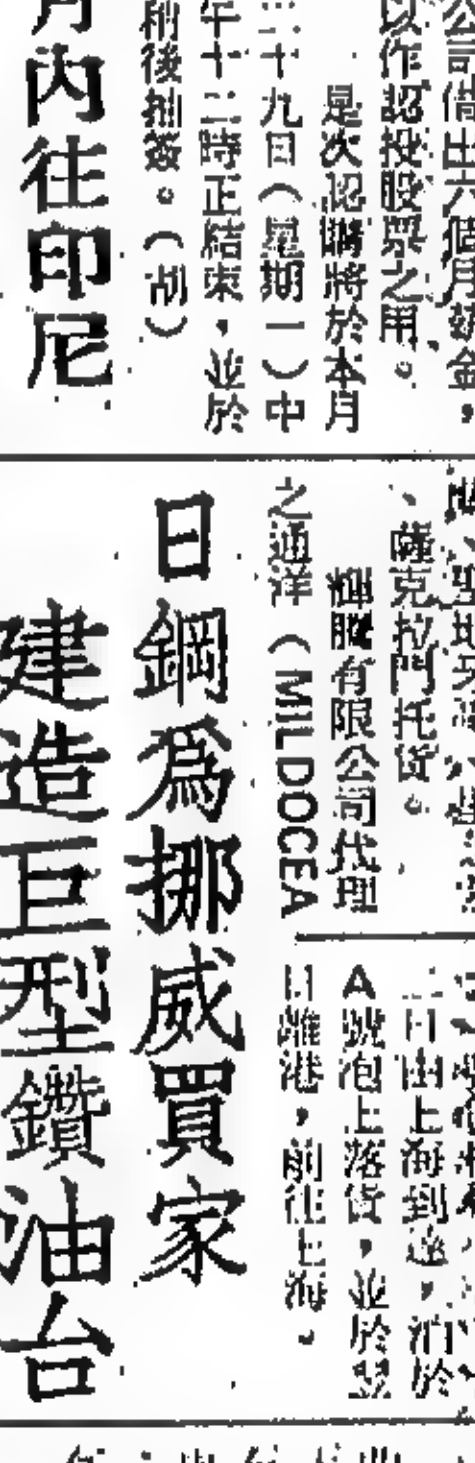 公司借出六個月薪金，
以作認投股票之用。
是次認購將於本月
二十九日（星期一）中
午十二時正結束，並於
稍後抽簽。（胡）
月內往印尼
、薩克拉門托貨。
輝騰有限公司代理
之通洋（MILDOCEA
二日由上海到達，泊於
A號泡上落貨，並於翌
日離港，前往上海。
日鋼爲挪威買家
建造巨型鑽油台